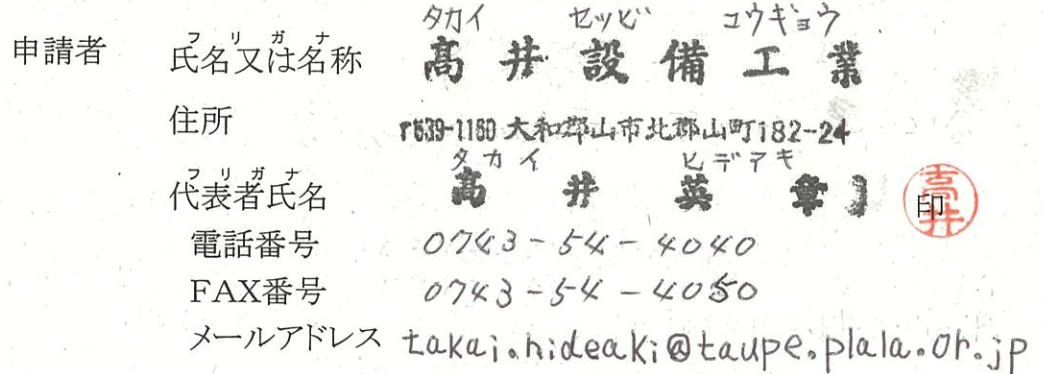 タカイ セッビ コウギョウ
申請者 フリガナ 氏名又は名称 髙井設備工業
住所 〒639-1160 大和郡山市北郡山町182-24
タカイ ヒデアキ
フリガナ 代表者氏名 髙井英章 印 髙井
電話番号 0743-54-4040
FAX番号 0743-54-4050
メールアドレス takai.hideaki@taupe.plala.or.jp